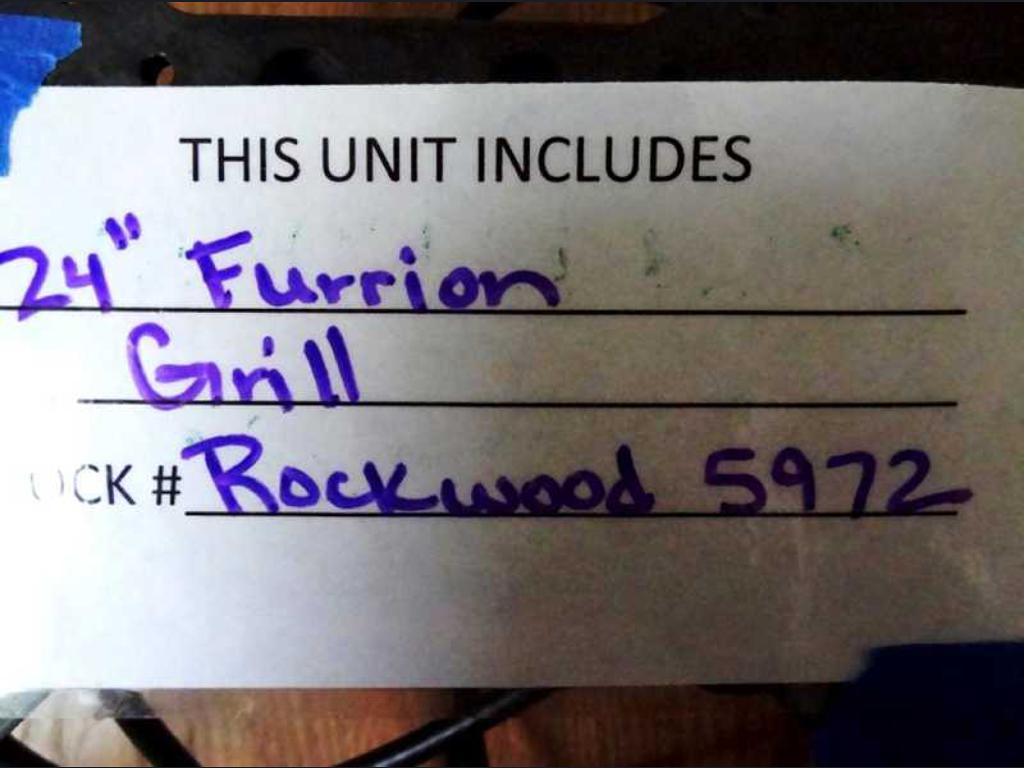 THIS UNIT INCLUDES
24" Furrion
Grill
OCK # Rockwood 5972